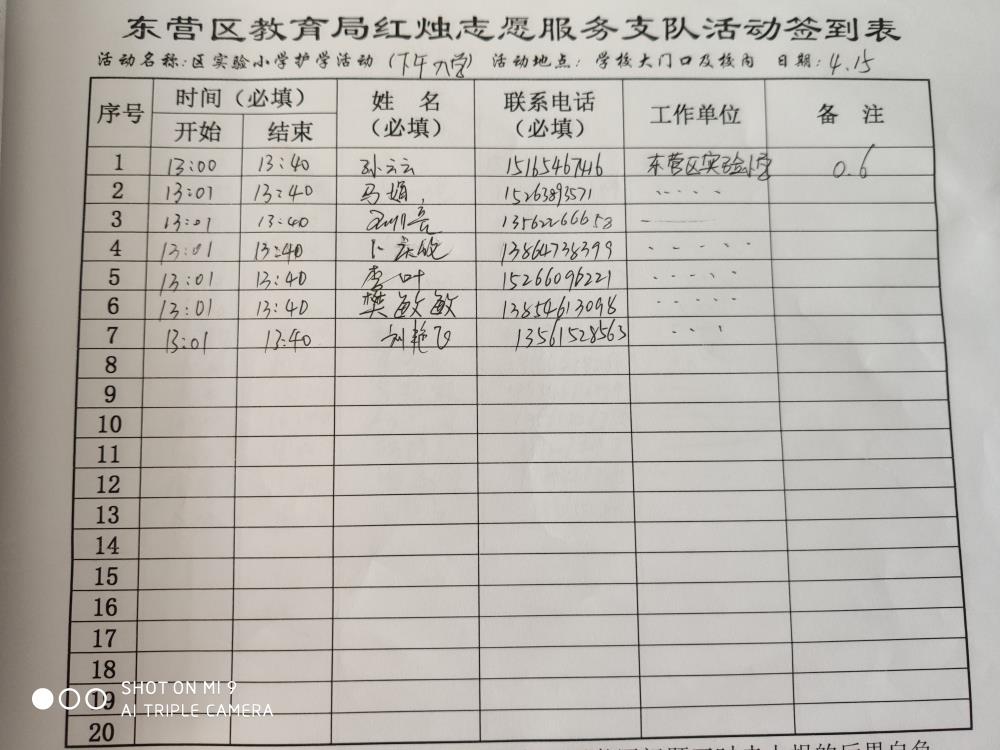 东营区教育局红烛志愿服务支队活动签到表
活动名称:区实验小学护学活动(下午入学) 活动地点: 学校大门口及校内 日期: 4.15
序号 时间(必填) 姓 名 (必填) 联系电话 (必填) 工作单位 备 注
开始 结束
1 13:00 13:40 孙云云 15165467416 东营区实验小学 0.6
2 13:01 13:40 马娟 15263893571
3 13:01 13:40 13562266658
4 13:01 13:40 13864738399
5 13:01 13:40 李叶 15266096221
6 13:01 13:40 樊敏敏 13854613098
7 13:01 13:40 刘艳飞 13561528563
8
9
10
11
12
13
14
15
16
17
18
19
20
SHOT ON MI 9
AI TRIPLE CAMERA